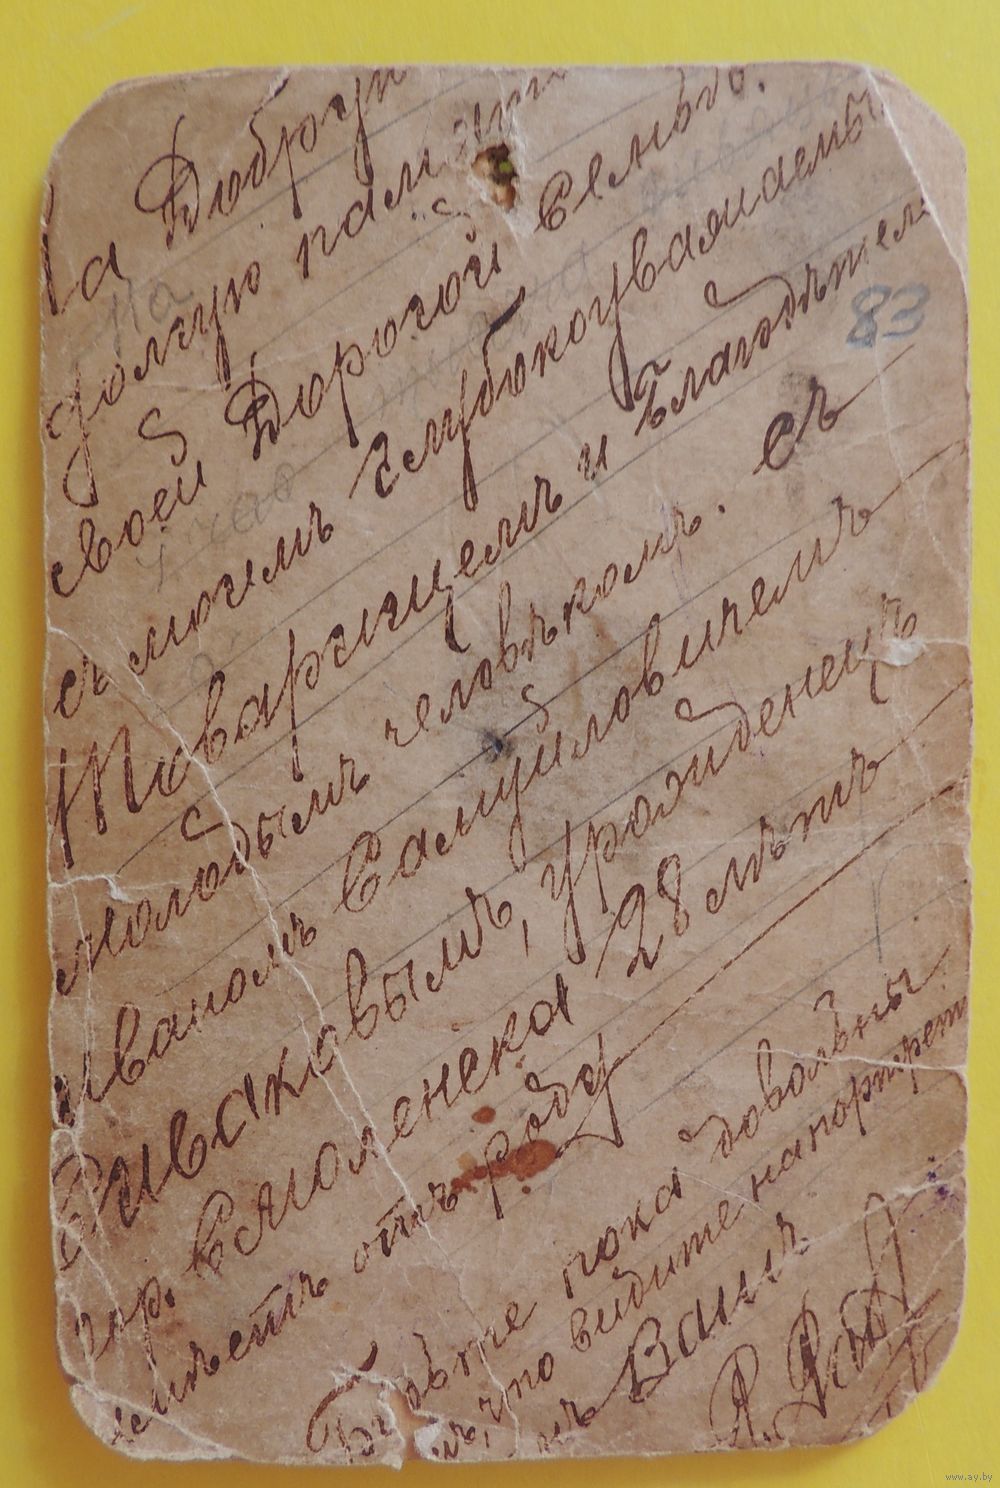 На Добрую
долгую память
своей Дорогой Семьѣ.
съ моимъ глубокоуважаемы
Товарищемъ и Благодѣтел
молодымъ человѣкомъ. съ
Иваномъ Самуиловичемъ
Риваковымъ, урожденецъ
гор. Смоленска 28 лѣтъ
имѣетъ отъ рода
Будьте пока довольны
тѣмъ, что видите на портрет
Вашъ
83
www.ay.by